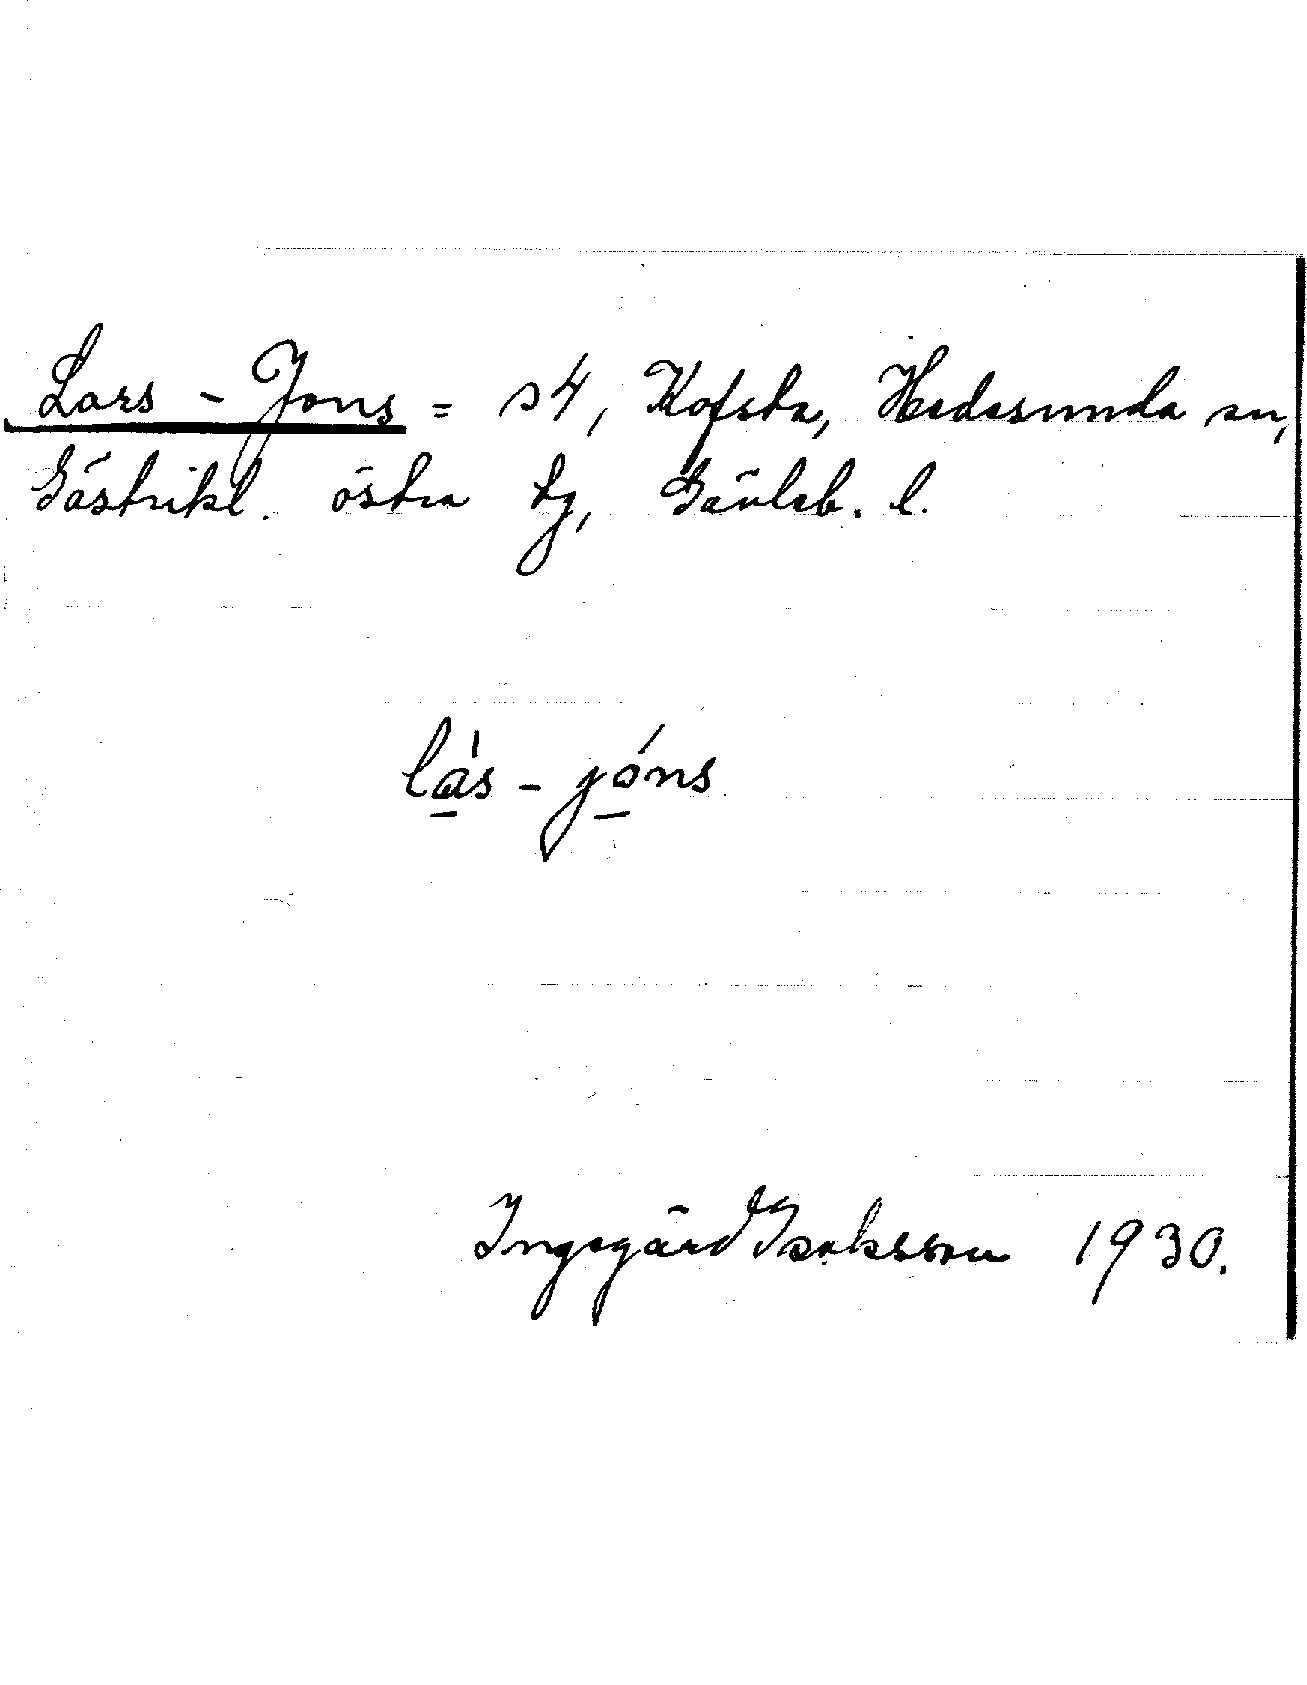 Lars - Jons = 24, Kofsta, Hedesunda sn,
Gästrikl. östra tg, Gävleb. l.
lás - jóns
Ingegärd Isaksson 1930.